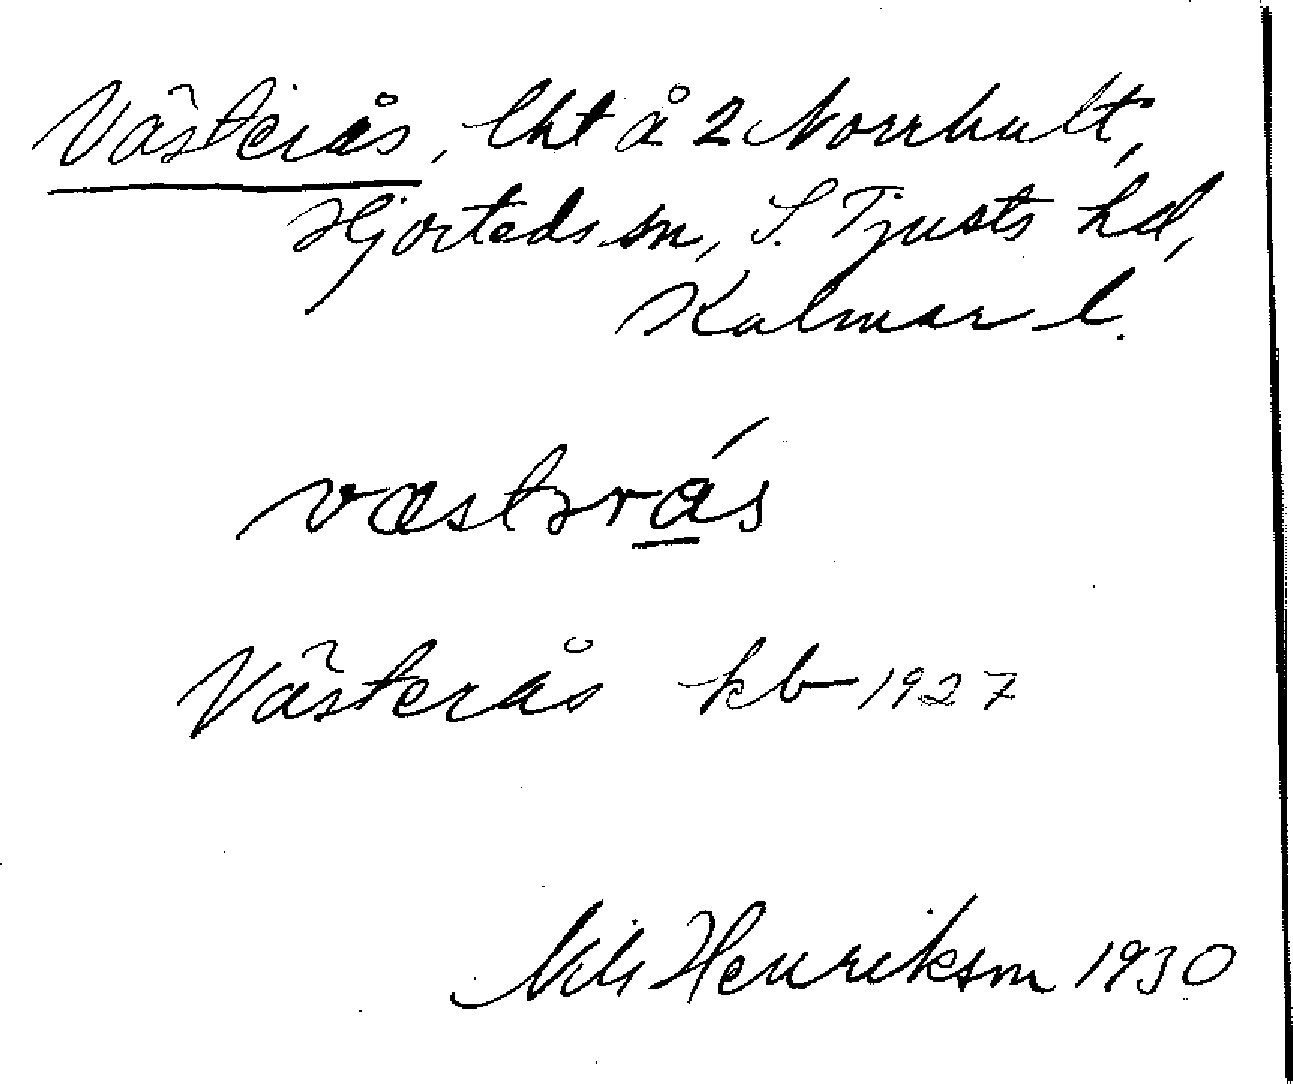 Västerås, lht å 2 Norrhult,
Hjorteds sn, S. Tjusts hd,
Kalmar l.
væstərás
Västerås kb 1927
Nils Henrikson 1930